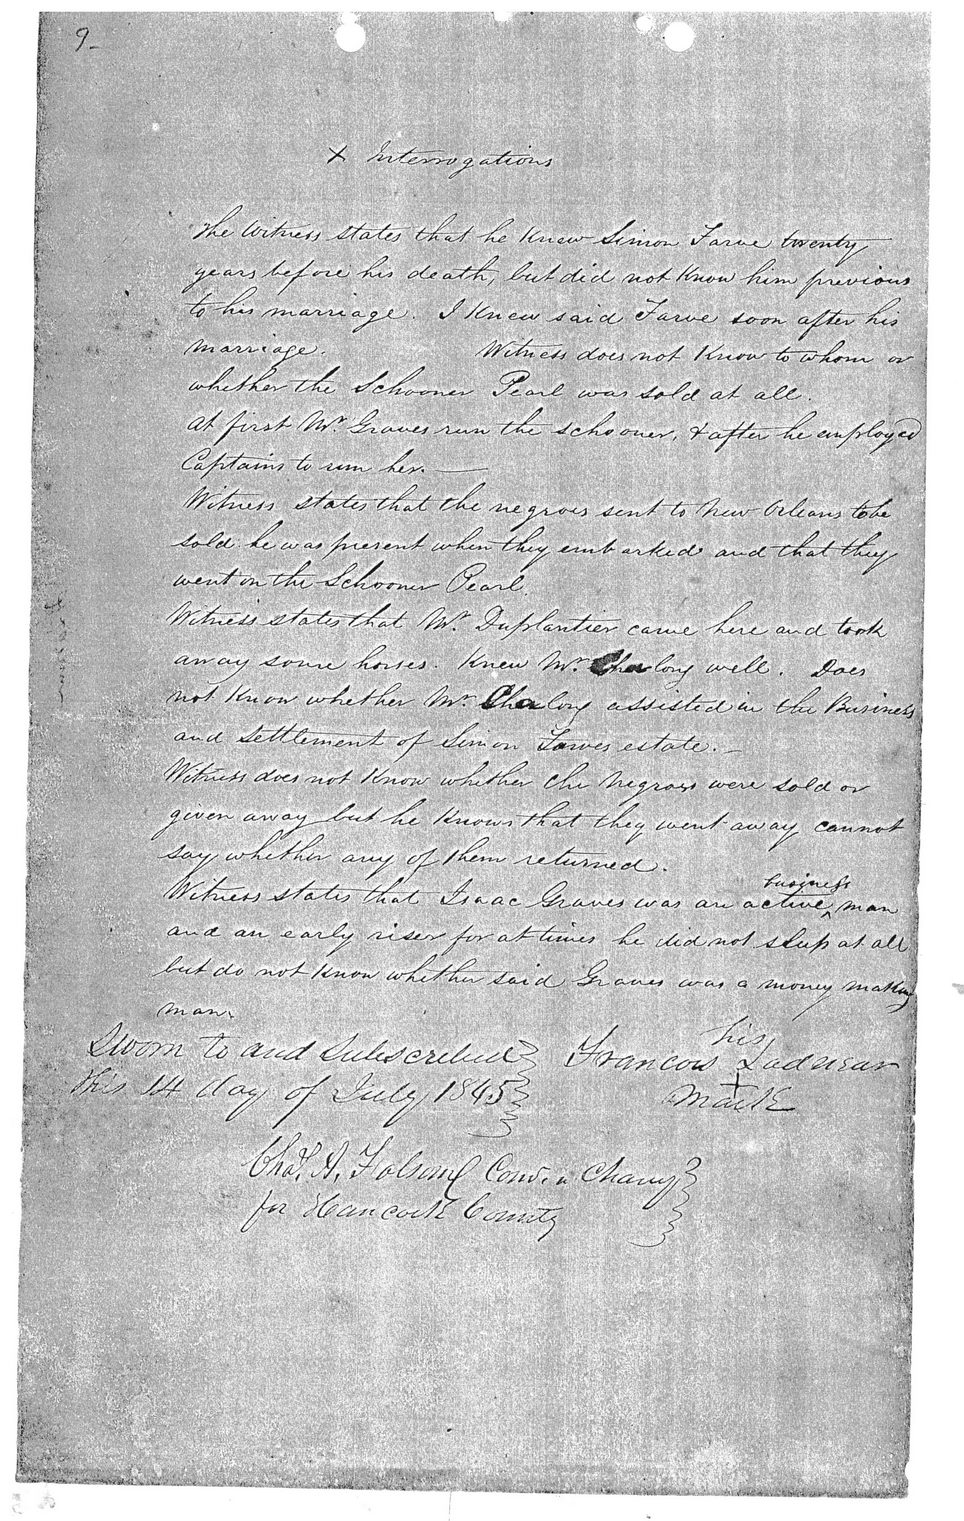 9-
X Interrogations
The Witness states that he Knew Simon Farve twenty
years before his death, but did not Know him previous
to his marriage. I Knew said Farve soon after his
marriage. Witness does not Know to whom or
whether the Schooner Pearl was sold at all.
At first Mr. Graves run the schooner, & after he employed
Captains to run her.—
Witness states that the negroes sent to New Orleans to be
sold: he was present when they embarked and that they
went on the Schooner Pearl.
Witness states that Mr. Duplantier came here and took
away some horses. Knew Mr. Chalong well. Does
not Know whether Mr. Chalong assisted in the Business
and settlement of Simon Farves estate.—
Witness does not Know whether the Negroes were sold or
given away but he Knows that they went away cannot
say whether any of them returned.
business
Witness states that Isaac Graves was an active ^ man
and an early riser for at times he did not sleep at all
but do not Know whether said Graves was a money making
man.
his
Sworn to and Subscribed Francois X Ladnear
this 14 day of July 1845 mark
Chas. A. Folsom Com. in Chany
for Hancock County